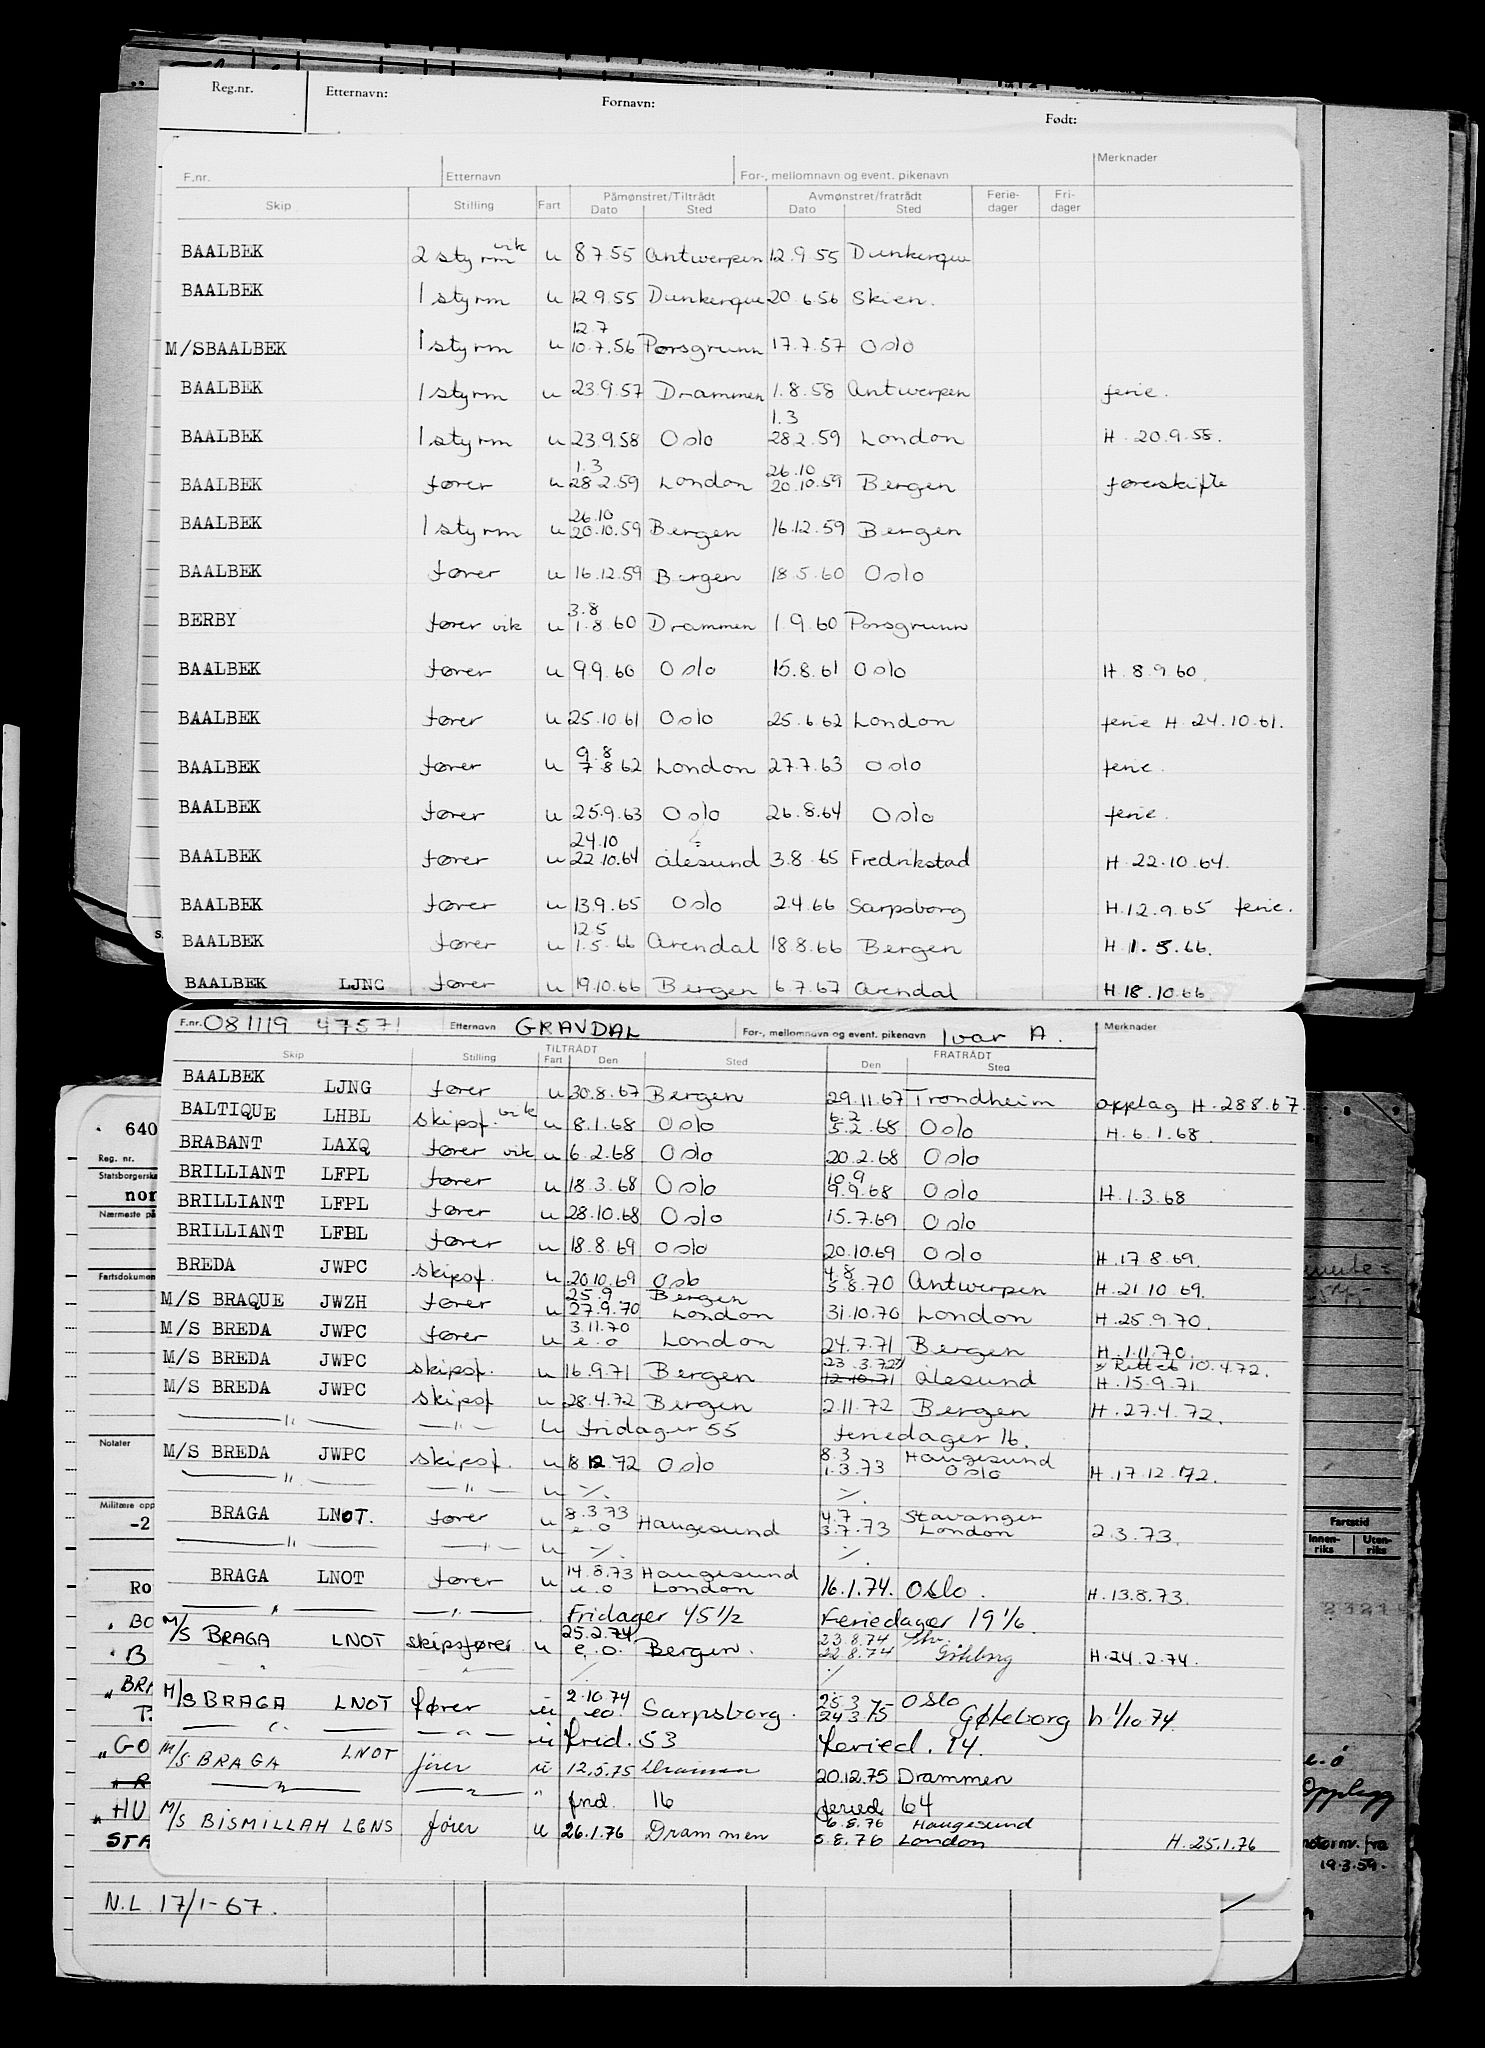 Reg.nr. Etternavn: Fornavn: Født:
F.nr. Etternavn For-, mellomnavn og event. pikenavn Merknader
Skip Stilling Fart Påmønstret/Tiltrådt Dato Sted Avmønstret/fratrådt Dato Sted Ferie-dager Fri-dager
BAALBEK 2 styrm vik u 8 7.55 Antwerpen 12.9.55 Dunkerque
BAALBEK 1 styrm u 12.9.55 Dunkerque 20.6.56 Skien.
12.7
M/SBAALBEK 1 styrm u 10.7.56 Porsgrunn 17.7.57 Oslo
BAALBEK 1 styrm u 23.9.57 Drammen 1.8.58 Antwerpen ferie.
1.3
BAALBEK 1 styrm u 23.9.58 Oslo 28.2.59 London H. 20.9.58.
1.3 26.10
BAALBEK fører u 28 2.59 London 20.10.59 Bergen førerskifte
26.10
BAALBEK 1 styrm u 20.10.59 Bergen 16.12.59 Bergen
BAALBEK fører u 16.12.59 Bergen 18.5.60 Oslo
3.8
BERBY fører vik u 1.8.60 Drammen 1.9.60 Porsgrunn
BAALBEK fører u 9.9.60 Oslo 15.8.61 Oslo H. 8.9.60.
BAALBEK fører u 25.10.61 Oslo 25.6.62 London ferie H. 24.10.61.
9.8
BAALBEK fører u 7.8 62 London 27.7.63 Oslo ferie.
BAALBEK fører u 25.9.63 Oslo 26.8.64 Oslo ferie.
24.10
BAALBEK fører u 22.10.64 Ålesund 3.8.65 Fredrikstad H. 22.10.64.
BAALBEK fører u 13.9.65 Oslo 2.4.66 Sarpsborg H.12.9.65 ferie.
12.5
BAALBEK fører u 1.5.66 Arendal 18.8.66 Bergen H. 1.5.66.
BAALBEK LJNG fører u 19.10.66 Bergen 6.7.67 Arendal H 18.10.66
F.nr. 081119 47571 Etternavn GRAVDAL For-, mellomnavn og event. pikenavn Ivar A. Merknader
Skip Stilling TILTRÅDT Fart Den Sted FRATRÅDT Den Sted
BAALBEK LJNG fører u 30.8.67 Bergen 29.11.67 Trondheim opplag H. 28 8.67.
6.2
BALTIQUE LHBL skipsf. vik u 8.1.68 Oslo 5.2.68 Oslo H. 6.1.68.
BRABANT LAXQ fører vik u 6.2.68 Oslo 20.2.68 Oslo
10.9
BRILLIANT LFPL fører u 18.3.68 Oslo 9.9.68 Oslo H.1.3.68
BRILLIANT LFPL fører u 28.10.68 Oslo 15.7.69 Oslo
BRILLIANT LFBL fører u 18.8.69 Oslo 20.10.69 Oslo H.17 8.69.
4.8
BREDA JWPC skipsf. u 20 10.69 Oslo 5.8.70 Antwerpen H.21 10 69.
25.9 Bergen
M/S BRAQUE JWZH fører u 27.9.70 London 31.10.70 London H.25.9.70.
3.11.70
M/S BREDA JWPC fører u e.o London 24.7.71 Bergen H.1.11.70.
23.3.72 x) x Rettet 10.4.72.
M/S BREDA JWPC skipsf. u 16.9.71 Bergen 12.10.71 Ålesund H.15.9.71
M/S BREDA JWPC skipsf u 28.4.72 Bergen 2.11.72 Bergen H.27.4.72.
— " — — " — u fridager 55 feriedager 16.
8.3 Haugesund
M/S BREDA JWPC skipsf. u 18 12 72 Oslo 1.3.73 Oslo H.17.12.72.
— " — — " — u ./. ./.
8.3.73 4.7 Stavanger
BRAGA LNOT. fører u e.o Haugesund 3.7.73 London 2.3.73.
— " — — " — u ./. ./.
14.8.73 Haugesund
BRAGA LNOT fører u e.o London 16.1.74. Oslo. H.13.8.73.
— " — — " — Fridager 45 1/2 Feriedager 19 1/6
25.2.74 23.8.74
M/S BRAGA LNOT skipsfører u e.o. Bergen. 22.8.74 Göteborg H.24.2.74.
2.10.74 25.3 Oslo
M/S BRAGA LNOT fører u eo. Sarpsborg. 24 3 75 Gøteborg h 1/10 74.
— " — — " — u frid. 53 feried. 14.
M/S BRAGA LNOT fører u 12.5.75 Drammen 20.12.75 Drammen
— " — — " — " frid. 16 feried 64
6.8.76 Haugesund
M/S BISMILLAH LENS fører u 26.1.76 Drammen 5.8.76 London H.25.1.76
640
Reg. nr.
nor
Fartsdokumen
Notater
Militære opp
-2
Ro
BO
B
BRI
GO
HU
STA
Fartstid
Innen-riks Uten-riks
23214
e.o
Opplegg
19.3.59.
N.L 17/1-67.